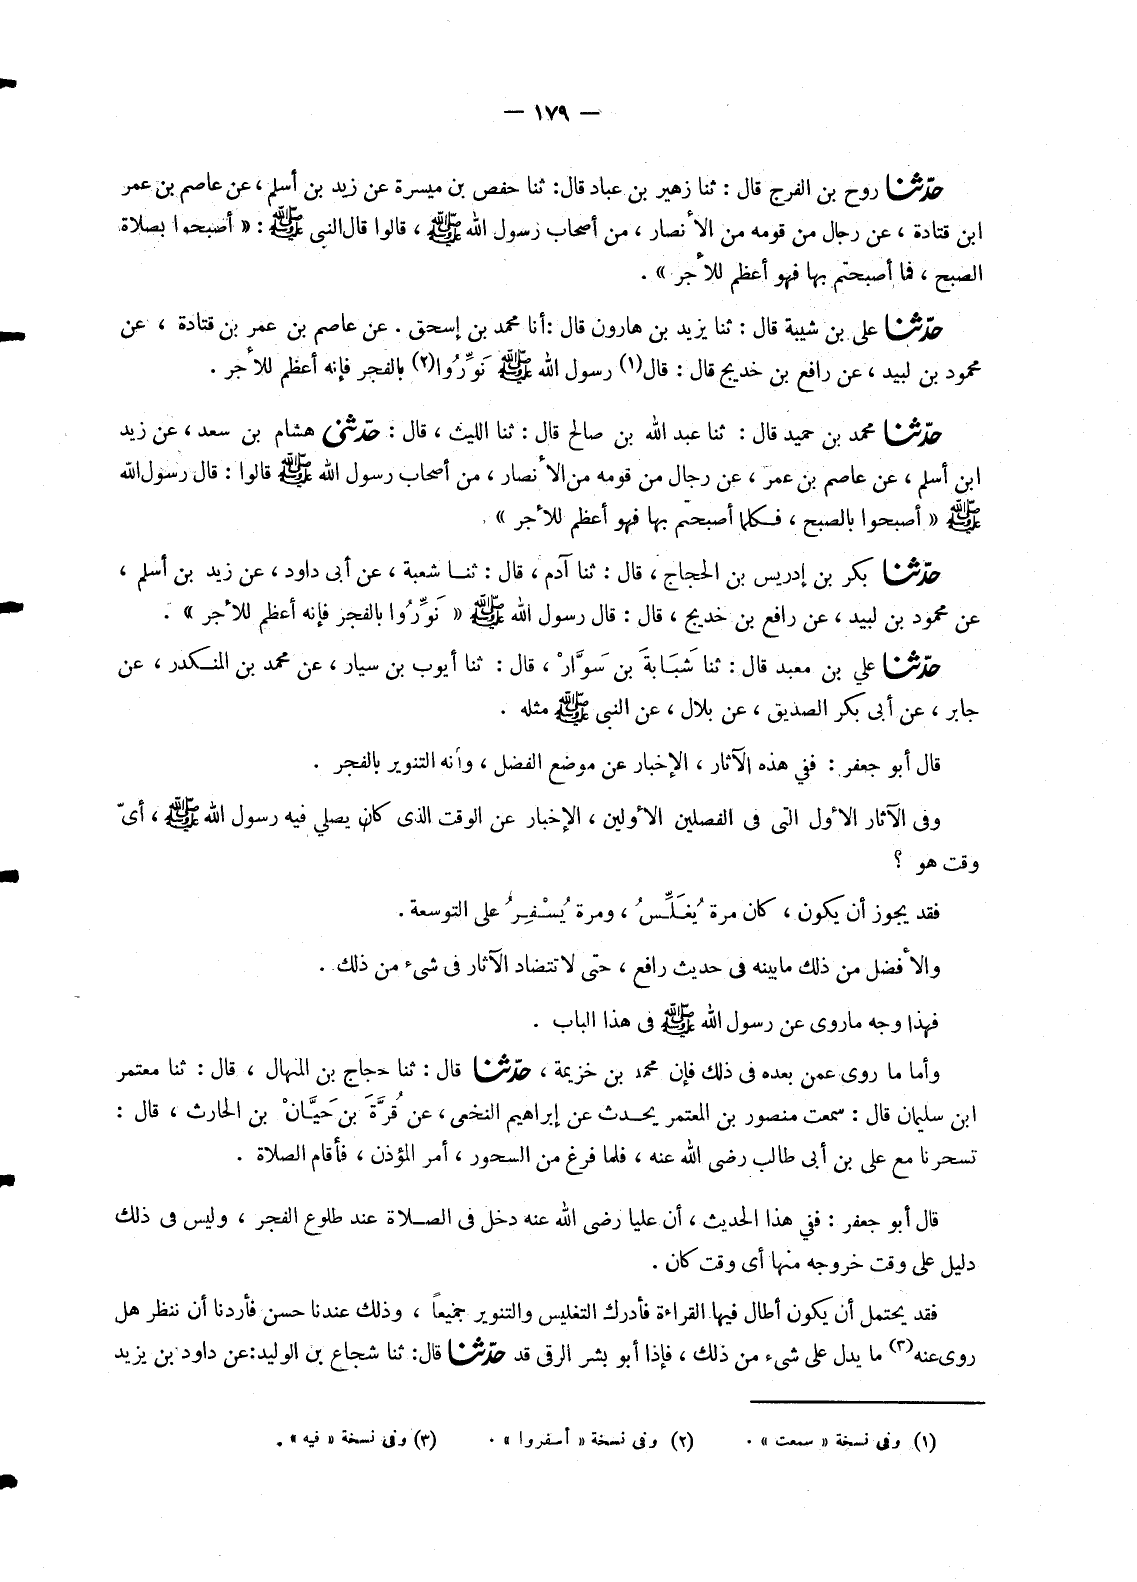 — ١٧٩ —
حدّثنا روح بن الفرج قال : ثنا زهير بن عباد قال: ثنا حفص بن ميسرة عن زيد بن أسلم، عن عاصم بن عمر
ابن قتادة ، عن رجال من قومه من الأنصار ، من أصحاب رسول الله ﷺ ، قالوا قال النبى ﷺ : « أصبحوا بصلاة
الصبح ، فما أصبحتم بها فهو أعظم للأجر » .
حدّثنا على بن شيبة قال : ثنا يزيد بن هارون قال :أنا محمد بن إسحق . عن عاصم بن عمر بن قتادة ، عن
محمود بن لبيد ، عن رافع بن خديج قال : قال(١) رسول الله ﷺ نَوِّرُوا(٢) بالفجر فإنه أعظم للأجر .
حدّثنا محمد بن حميد قال : ثنا عبد الله بن صالح قال : ثنا الليث ، قال : حدّثنى هشام بن سعد ، عن زيد
ابن أسلم ، عن عاصم بن عمر ، عن رجال من قومه من الأنصار ، من أصحاب رسول الله ﷺ قالوا : قال رسول الله
ﷺ « أصبحوا بالصبح ، فكلما أصبحتم بها فهو أعظم للأجر » .
حدّثنا بكر بن إدريس بن الحجاج ، قال : ثنا آدم ، قال : ثنا شعبة ، عن أبى داود ، عن زيد بن أسلم ،
عن محمود بن لبيد ، عن رافع بن خديج ، قال : قال رسول الله ﷺ « نَوِّرُوا بالفجر فإنه أعظم للأجر » .
حدّثنا علي بن معبد قال : ثنا شَبَابةَ بن سَوَّارْ ، قال : ثنا أيوب بن سيار ، عن محمد بن المنكدر ، عن
جابر ، عن أبى بكر الصديق ، عن بلال ، عن النبى ﷺ مثله .
قال أبو جعفر : ففي هذه الآثار ، الإخبار عن موضع الفضل ، وأنه التنوير بالفجر .
وفى الآثار الأول التى فى الفصلين الأولين ، الإخبار عن الوقت الذى كان يصلي فيه رسول الله ﷺ ، أىّ
وقت هو ؟
فقد يجوز أن يكون ، كان مرة يُغَلِّسُ ، ومرة يُسْفِرُ على التوسعة .
والأفضل من ذلك مابينه فى حديث رافع ، حتى لا تتضاد الآثار فى شىء من ذلك .
فهذا وجه ماروى عن رسول الله ﷺ فى هذا الباب .
وأما ما روى عمن بعده فى ذلك فإن محمد بن خزيمة ، حدّثنا قال : ثنا حجاج بن المنهال ، قال : ثنا معتمر
ابن سليمان قال : سمعت منصور بن المعتمر يحدث عن إبراهيم النخعى ، عن قُرَّةَ بن حَيَّانْ بن الحارث ، قال :
تسحرنا مع على بن أبى طالب رضى الله عنه ، فلما فرغ من السحور ، أمر المؤذن ، فأقام الصلاة .
قال أبو جعفر : ففي هذا الحديث ، أن عليا رضى الله عنه دخل فى الصلاة عند طلوع الفجر ، وليس فى ذلك
دليل على وقت خروجه منها أى وقت كان .
فقد يحتمل أن يكون أطال فيها القراءة فأدرك التغليس والتنوير جميعاً ، وذلك عندنا حسن فأردنا أن ننظر هل
روى عنه(٣) ما يدل على شىء من ذلك ، فإذا أبو بشر الرقى قد حدّثنا قال: ثنا شجاع بن الوليد:عن داود بن يزيد
(١) وفى نسخة « سمعت » . (٢) وفى نسخة « أسفروا » . (٣) وفى نسخة « فيه » .